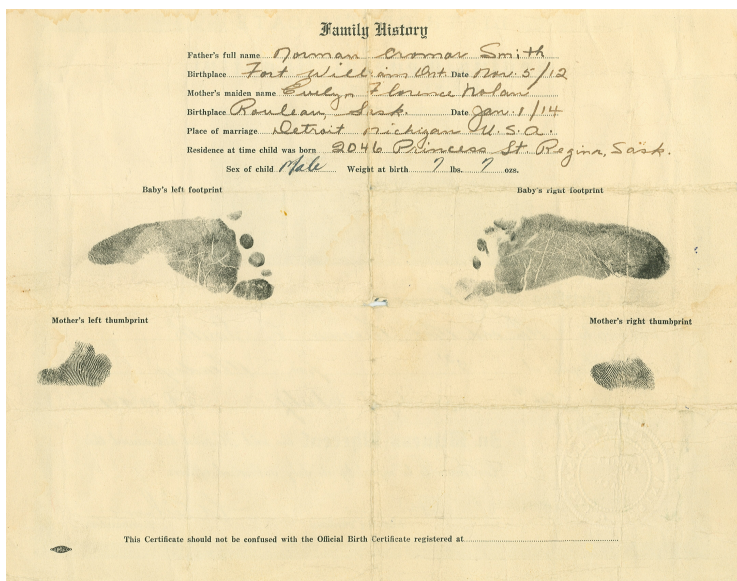 Family History
Father's full name Norman Cromar Smith
Birthplace Fort William Ont Date Nov. 5/12
Mother's maiden name Evelyn Florence Nolan
Birthplace Rouleau, Sask. Date Jan. 1/14
Place of marriage Detroit Michigan U.S.A.
Residence at time child was born 2046 Princess St. Regina, Sask.
Sex of child Male Weight at birth 7 lbs. 7 ozs.
Baby's left footprint Baby's right footprint
Mother's left thumbprint Mother's right thumbprint
This Certificate should not be confused with the Official Birth Certificate registered at